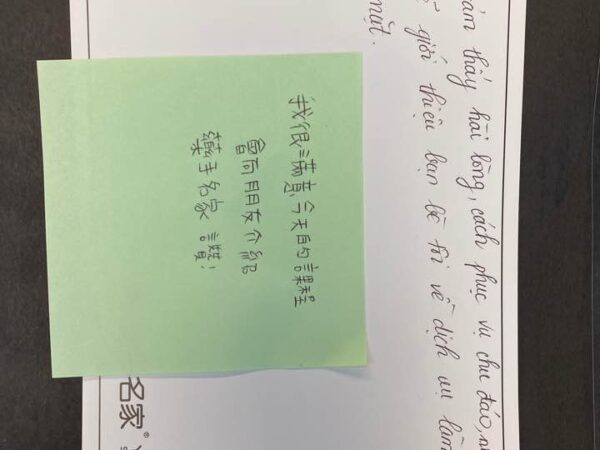 cảm thấy hài lòng, cách phục vụ chu đáo,
giới thiệu bạn bè tôi về dịch vụ làm
mặt.
我很滿意今天的課程
會向朋友介紹
藥手名家 讚!
名家®